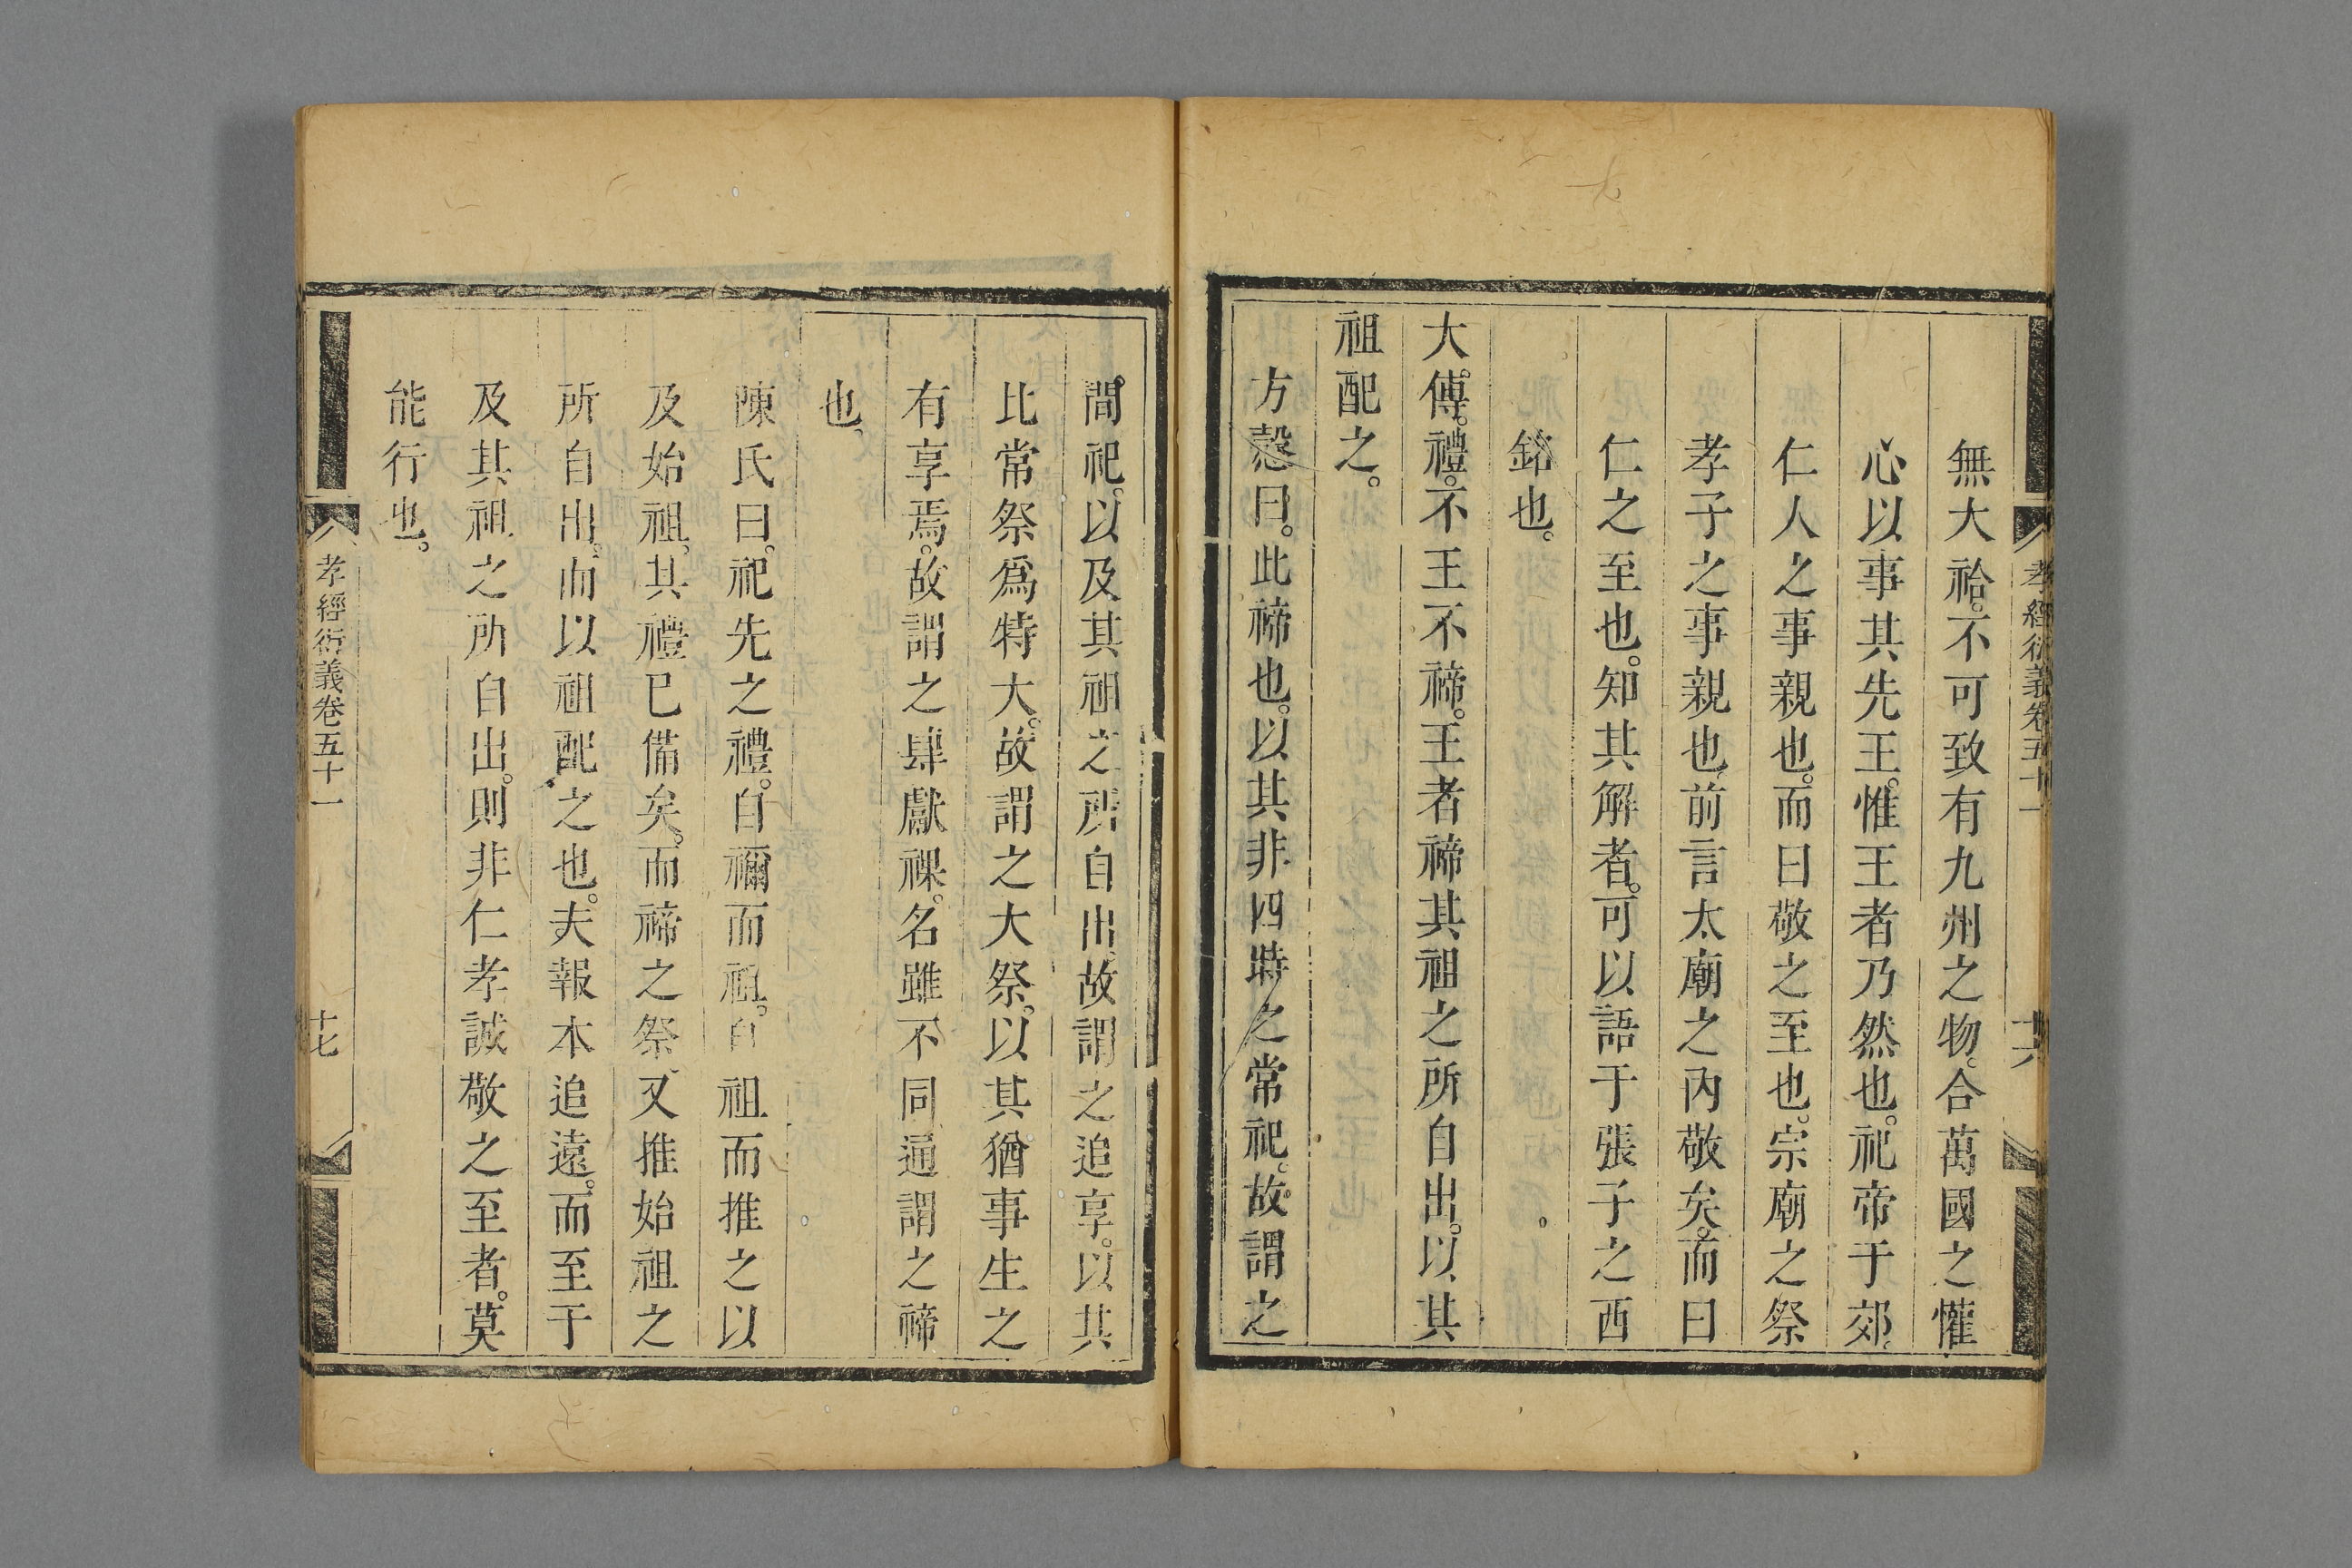 孝經衍義卷五十一
十六
無大祫。不可致有九州之物。合萬國之懽
心以事其先王。惟王者乃然也。祀帝于郊。
仁人之事親也。而曰敬之至也。宗廟之祭
孝子之事親也。前言太廟之內敬矣。而曰
仁之至也。知其解者。可以語于張子之西
銘也。
大傅。禮。不王不禘。王者禘其祖之所自出。以其
祖配之。
方慤曰。此禘也。以其非四時之常祀。故謂之
間祀。以及其祖之所自出。故謂之追享。以其
比常祭爲特大。故謂之大祭。以其猶事生之
有享焉。故謂之肆獻祼。名雖不同通謂之禘
也。
陳氏曰。祀先之禮。自禰而祖。自祖而推之以
及始祖。其禮已備矣。而禘之祭。又推始祖之
所自出。而以祖配之也。夫報本追遠。而至于
及其祖之所自出。則非仁孝誠敬之至者。莫
能行也。
孝經衍義卷五十一
十七